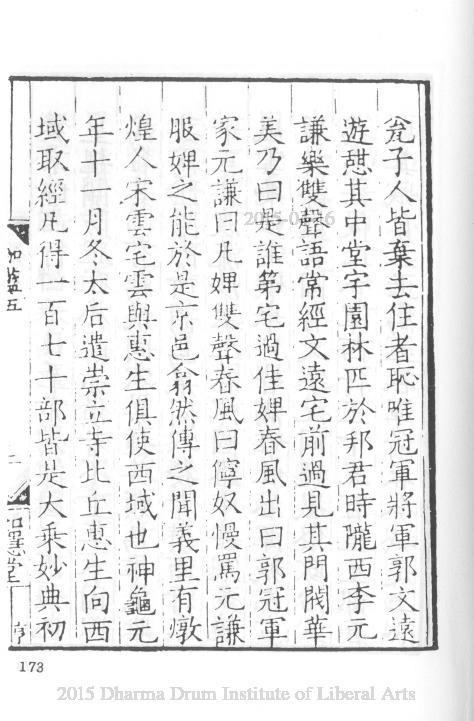 瓮子人皆棄去住者恥唯冠軍將軍郭文遠
遊憇其中堂宇園林匹於邦君時隴西李元
謙樂雙聲語常經文遠宅前過見其門閥華
美乃曰是誰第宅過佳婢春風出曰郭冠軍
家元謙曰凡婢雙聲春風曰儜奴慢罵元謙
服婢之能於是京邑翕然傳之聞義里有燉
煌人宋雲宅雲與惠生俱使西域也神龜元
年十一月冬太后遣崇立寺比丘惠生向西
域取經凡得一百七十部皆是大乘妙典初
加藍五
二
如隱堂
173
2015 Dharma Drum Institute of Liberal Arts